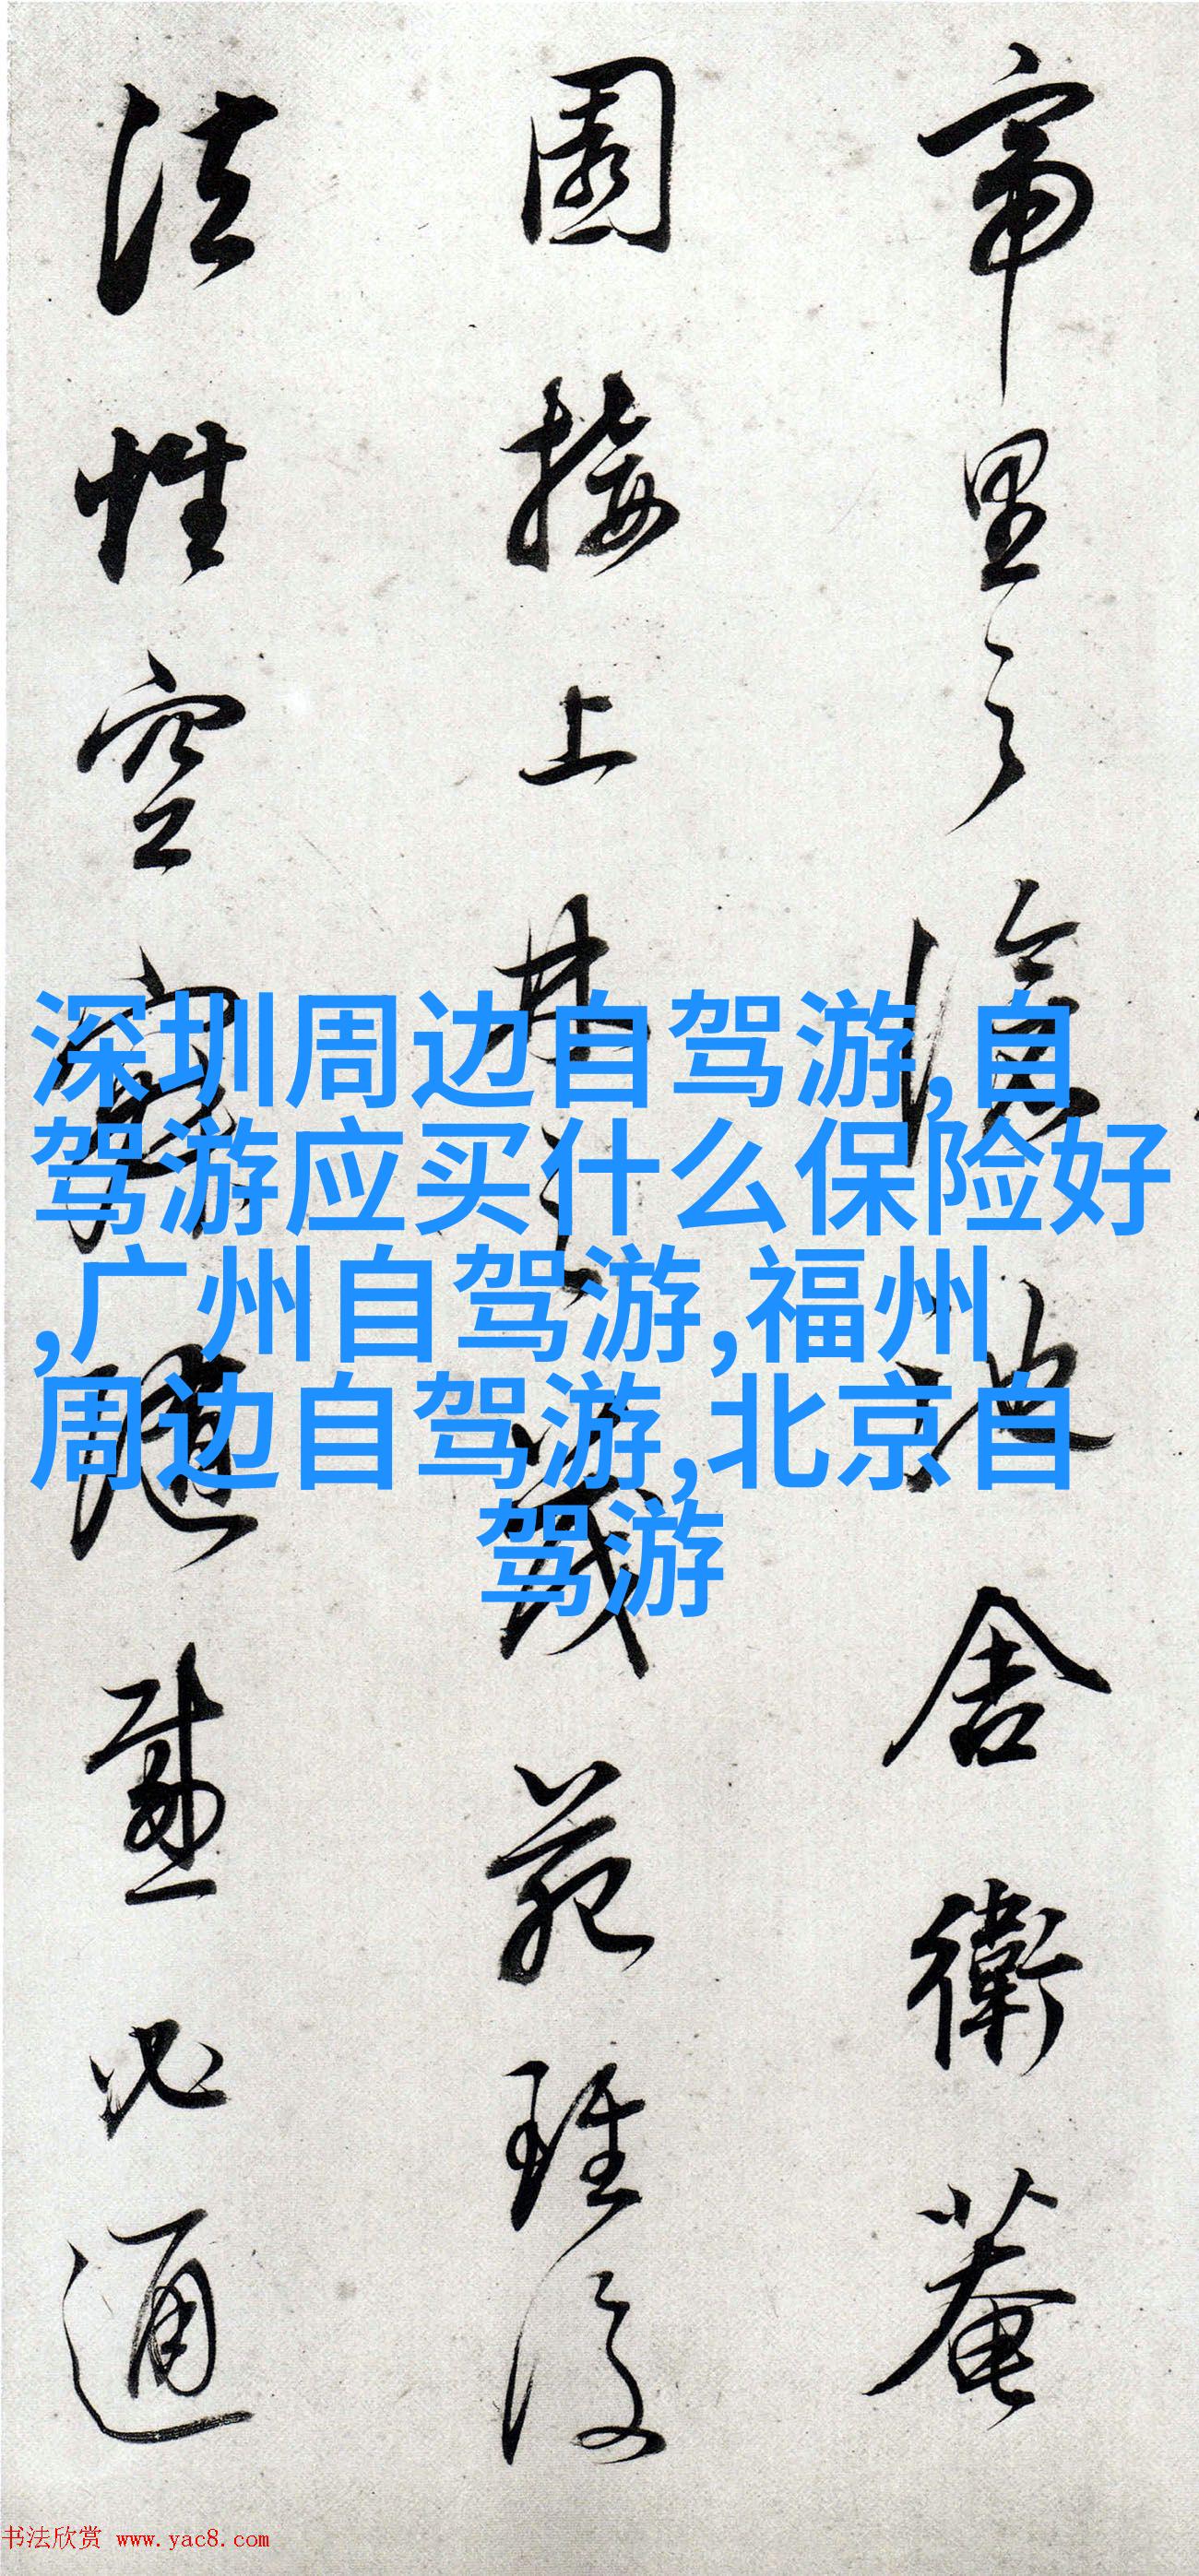 帝里之滄池舍衛菴
園接上林之茂苑雅後
法性空寂隨感必通
深圳周边自驾游,自
驾游应买什么保险好
,广州自驾游,福州
周边自驾游,北京自
驾游
书法欣赏 www.yac8.com